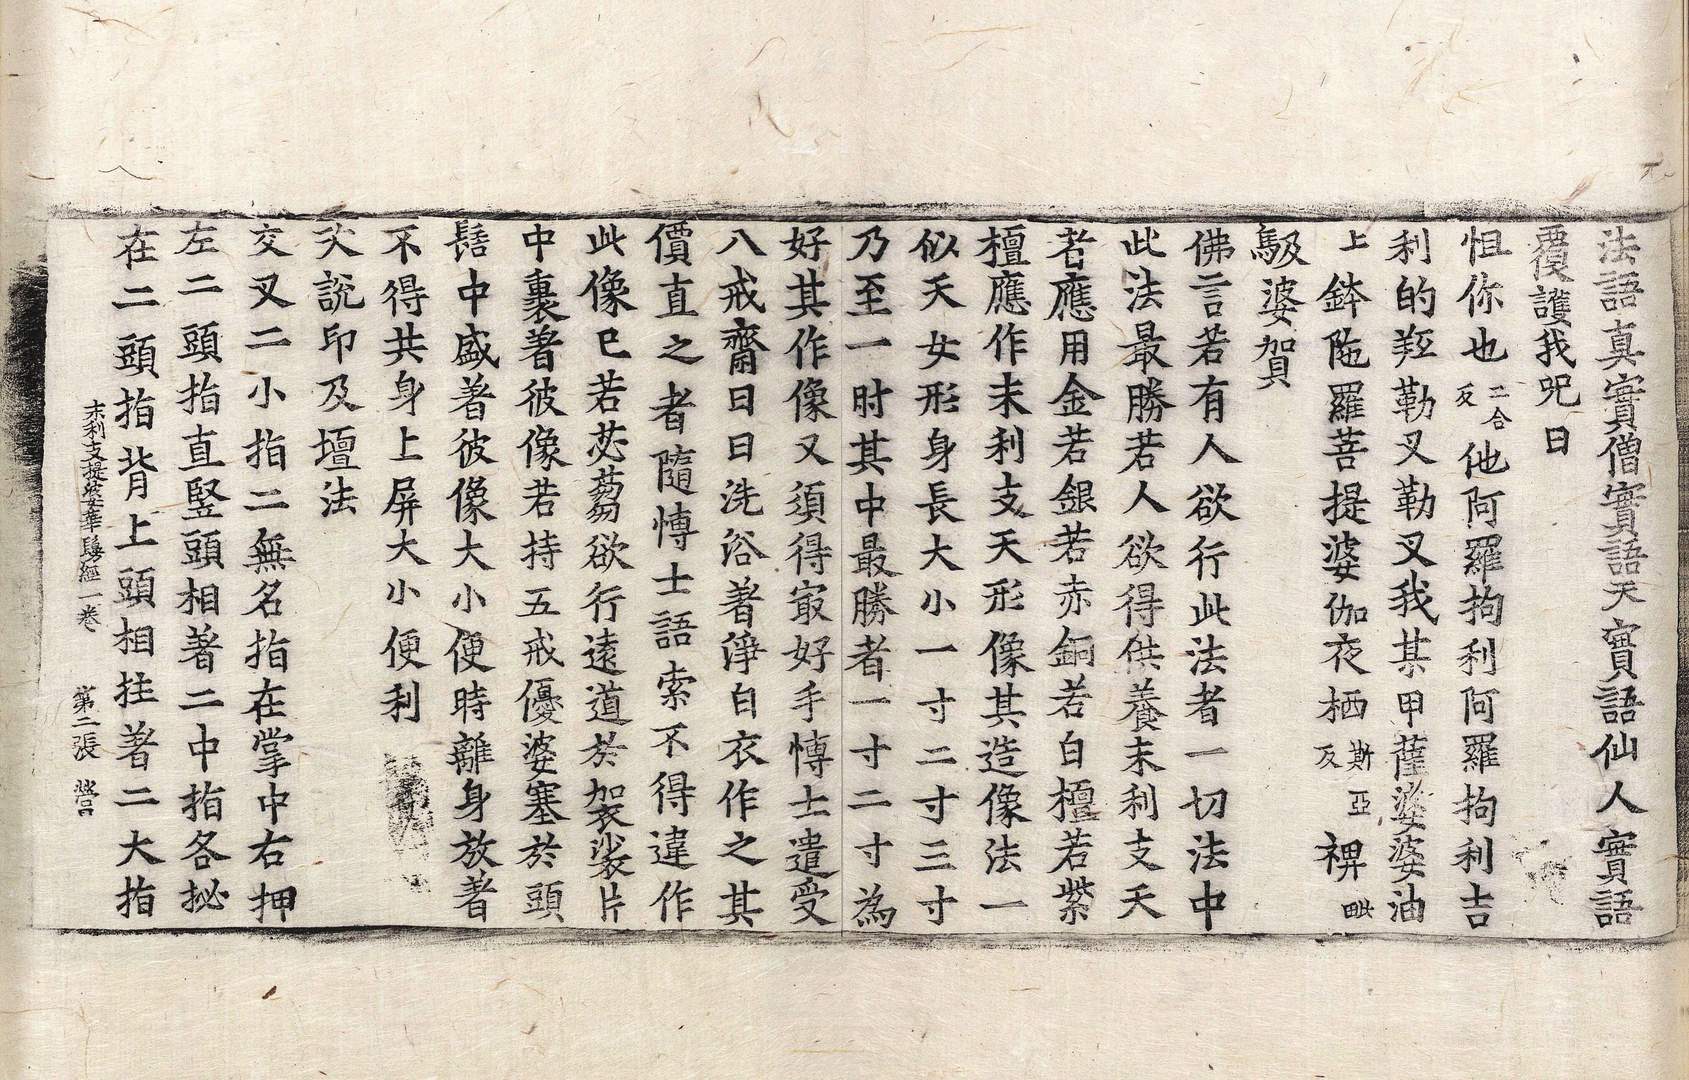 法語真實僧實語天實語仙人實語
覆護我呪曰
怛你也二合反他阿羅拘利阿羅拘利吉
利的羥勒叉勒叉我某甲薩婆婆油
上鉢陁羅菩提婆伽夜栖斯亞反禆毗
馺婆賀
佛言若有人欲行此法者一切法中
此法最勝若人欲得供養末利支天
者應用金若銀若赤銅若白檀若紫
檀應作末利支天形像其造像法一
似天女形身長大小一寸二寸三寸
乃至一肘其中最勝者一寸二寸為
好其作像又須得㝡好手愽士遣受
八戒齋日日洗浴著淨白衣作之其
價直之者隨愽士語索不得違作
此像已若苾芻欲行遠道於袈裟片
中裹著彼像若持五戒優婆塞於頭
髻中盛著彼像大小便時離身放著
不得共身上屏大小便利
次說印及壇法
交叉二小指二無名指在掌中右押
左二頭指直竪頭相著二中指各捻
在二頭指背上頭相拄著二大指
末利支提婆華鬘經一卷 第二張 營